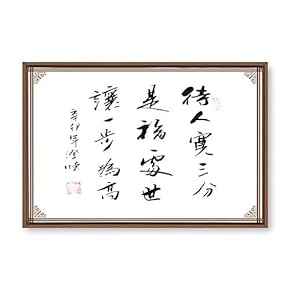 待人寬三分
是福處世
讓一步為高
辛卯年澄